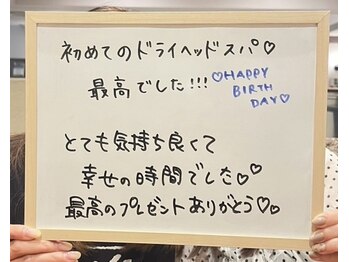 初めてのドライヘッドスパ♡
最高でした!!!
♡HAPPY
BIRTH
DAY♡
とても気持ち良くて
幸せの時間でした♡♡
最高のプレゼントありがとう♡♡